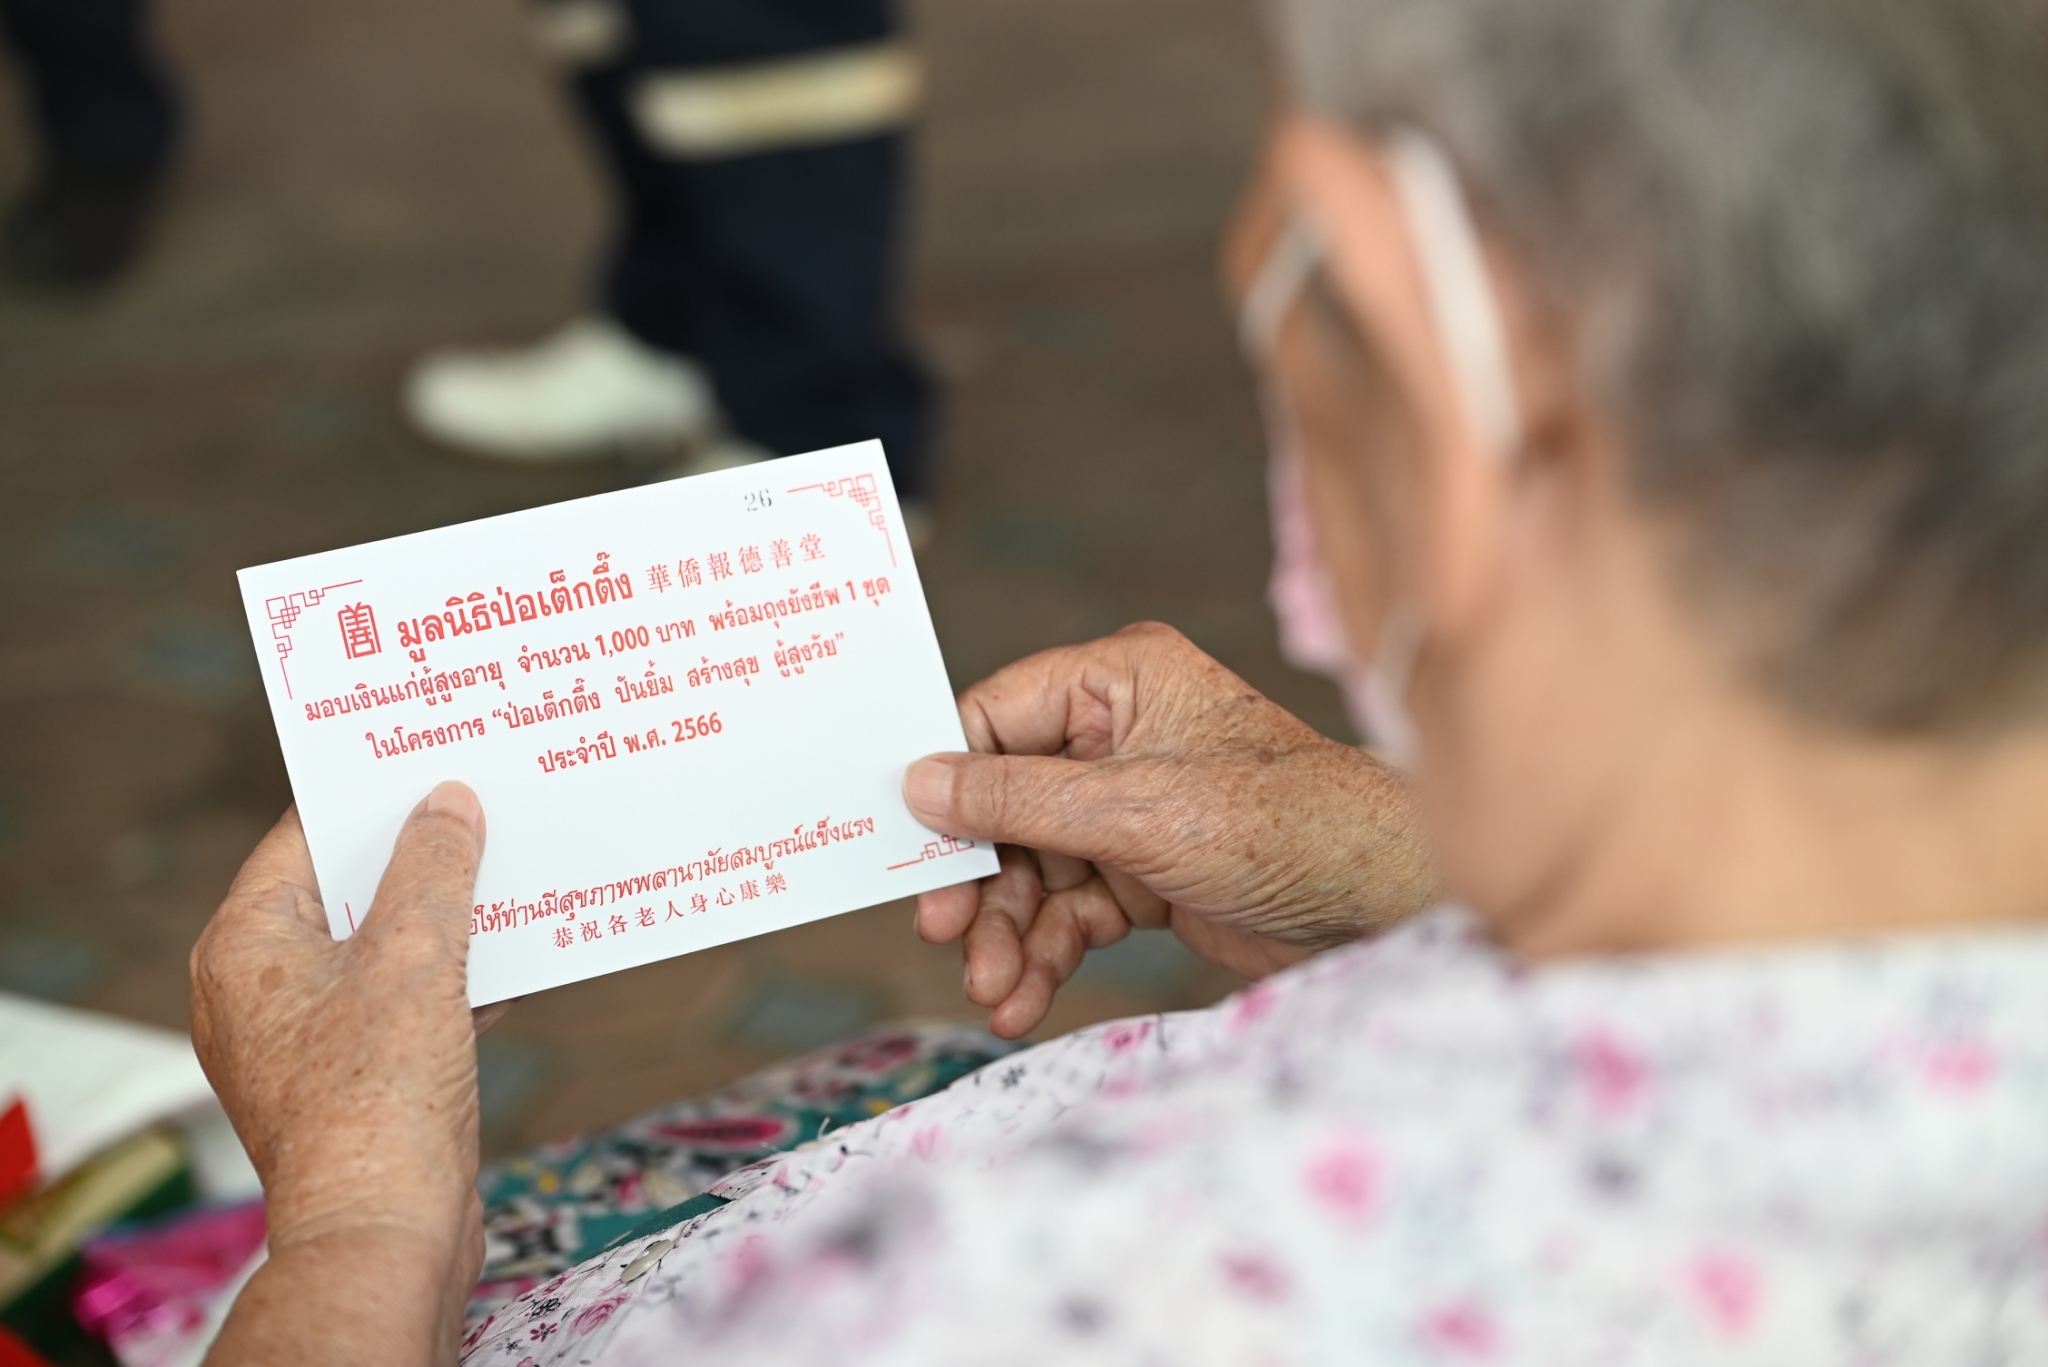 26
มูลนิธิป่อเต็กตึ๊ง 華僑報德善堂
มอบเงินแก่ผู้สูงอายุ จำนวน 1,000 บาท พร้อมถุงยังชีพ 1 ชุด
ในโครงการ “ป่อเต็กตึ๊ง ปันยิ้ม สร้างสุข ผู้สูงวัย”
ประจำปี พ.ศ. 2566
ให้ท่านมีสุขภาพพลานามัยสมบูรณ์แข็งแรง
恭祝各老人身心康樂